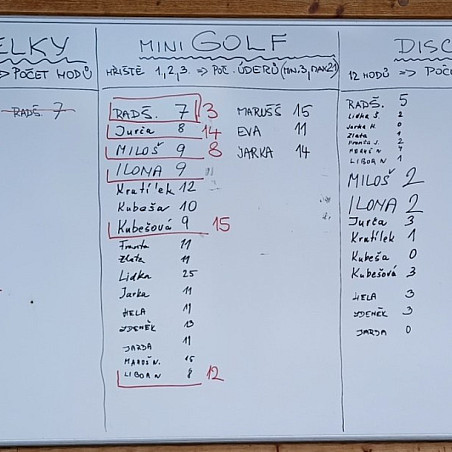 ELKY
=> POČET HODŮ
RADŠ. 7
MINI GOLF
HŘIŠTĚ 1,2,3. => POČ. ÚDERŮ (MIN.3, MAX.21)
RADŠ. 7 3
Jurča 8 14
MILOŠ 9 8
ILONA 9
Kratílek 12
Kubeša 10
Kubešová 9 15
Franta 11
Zlata 11
Lidka 25
Jarka 11
HELA 11
ZDENĚK 13
JARDA 11
MARUŠ N. 15
LIBOR N 8 12
MARUŠŠ 15
EVA 11
JARKA 14
DISC
12 HODŮ => POČE
RADŠ. 5
Lidka Š. 2
Jarka H. 0
Zlata 1
Franta J. 2
MARUŠ N 4
LIBOR N 1
MILOŠ 2
ILONA 2
Jurča 3
Kratílek 1
Kubeša 0
Kubešová 3
HELA 3
ZDENĚK 3
JARDA 0